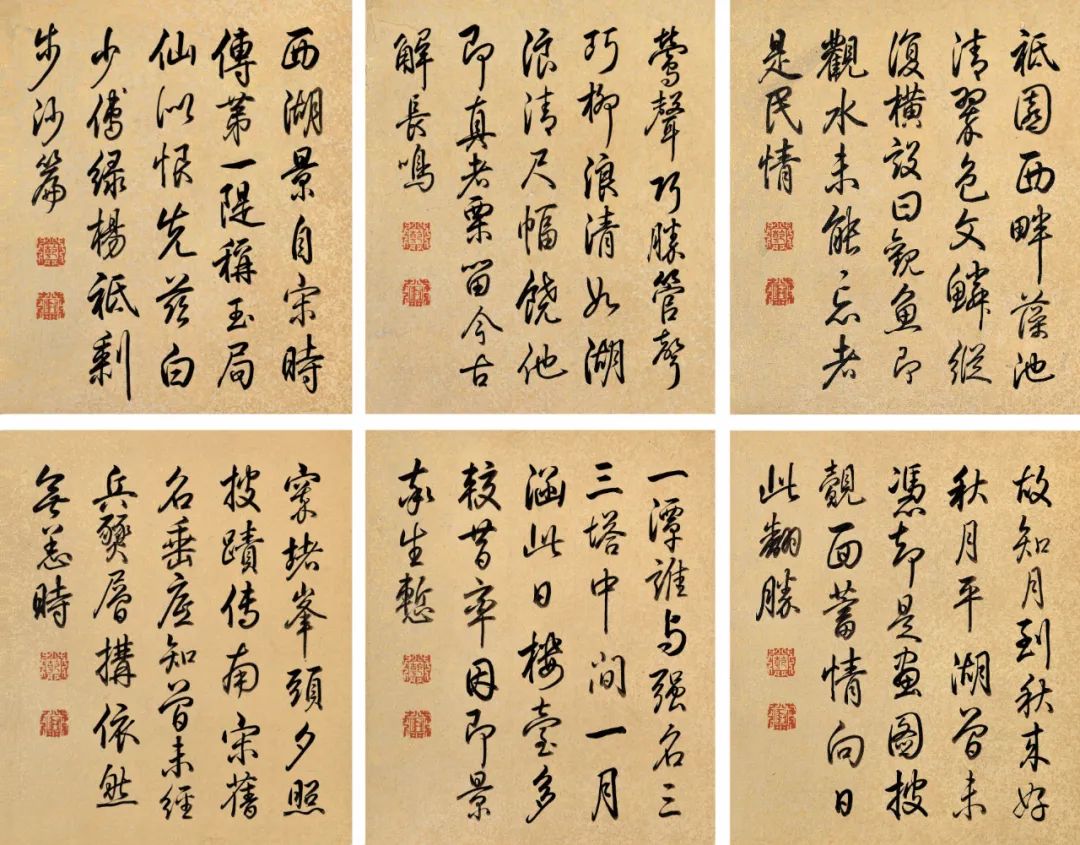 西湖景自宋時
傳第一隄稱玉局
仙似恨先茲白
少傅綠楊祗剩
步沙篇
鶯聲巧勝管聲
巧柳浪清如湖
浪清尺幅饒他
即真者栗留今古
解長鳴
祗園西畔藻池
清翠色文鱗縱
復橫設曰觀魚即
觀水未能忘者
是民情
窣堵峯頭夕照
披蹟傳南宋舊
名垂底知曾未經
兵燹層搆依然
無恙時
一潭誰与强名三
三塔中間一月
涵此日樓臺多
較昔率因即景
生慙
故知月到秋來好
秋月平湖曾未
憑却是畫圖披
覿面蓄情向日
此翻勝